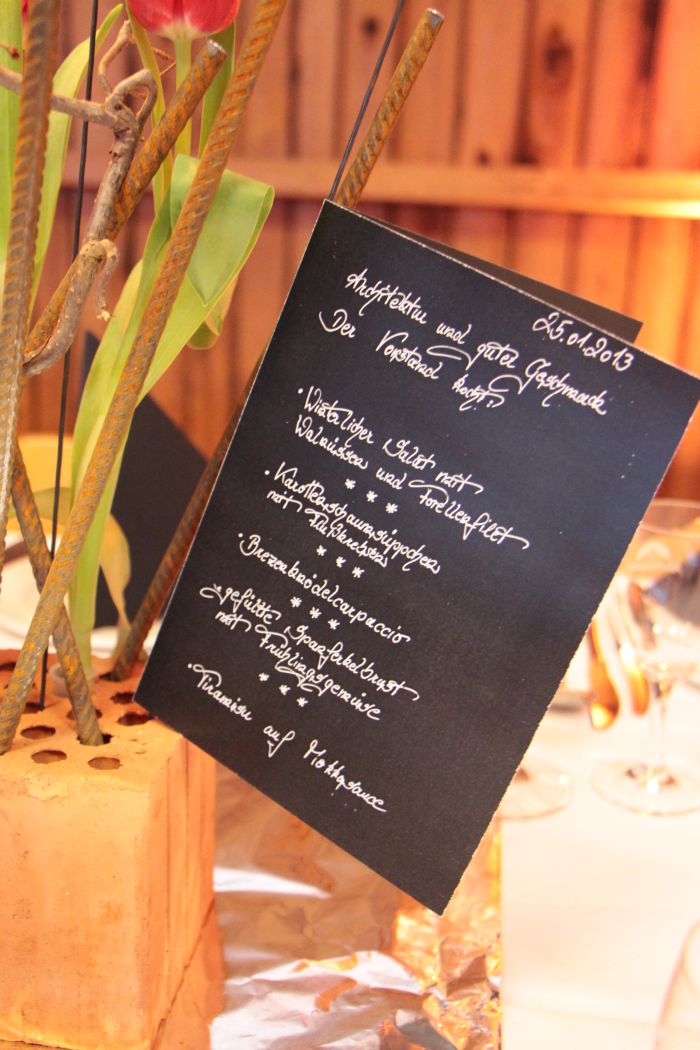 25.01.2013
Architektur und guter Geschmack
Der Vorstand kocht!
• Winterlicher Salat mit
Walnüssen und Forellenfilet
* * *
• Karottenschaumsüppchen
mit Flußkrebsen
* * *
• Brezenknödelcarpaccio
* * *
gefüllte Spanferkelbrust
mit Frühlingsgemüse
* * *
• Tiramisu auf Mokkasauce